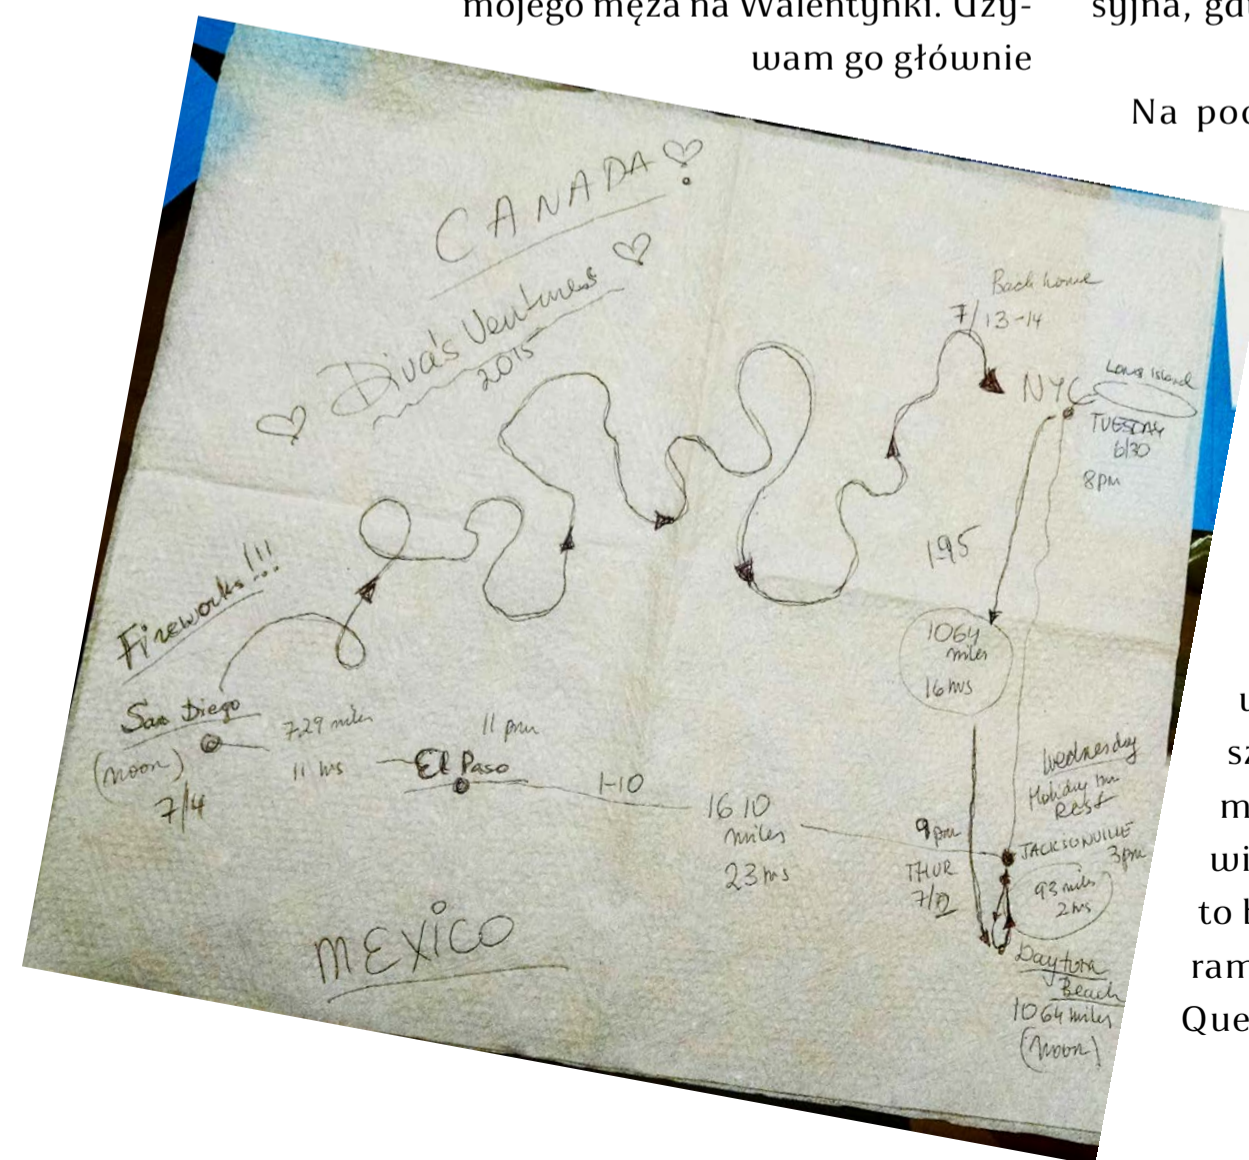 mojego męża na Walentynki. Uży-
wam go głównie
syjna, gdy
Na poc
CANADA
Diva's Ventures
2015
Back home
7/13-14
NYC
Long Island
TUESDAY
6/30
8pm
195
1064
miles
16 hrs
Fireworks!!!
San Diego
(noon)
7/4
729 miles
11 hrs
11 pm
El Paso
1-10
1610
miles
23 hrs
Wednesday
Holiday Inn
Rest
JACKSONVILLE
3pm
9pm
THUR
93 miles
2 hrs
Daytona
Beach
1064 miles
(noon)
MEXICO
u
sz
m
wi
to
ram
Que